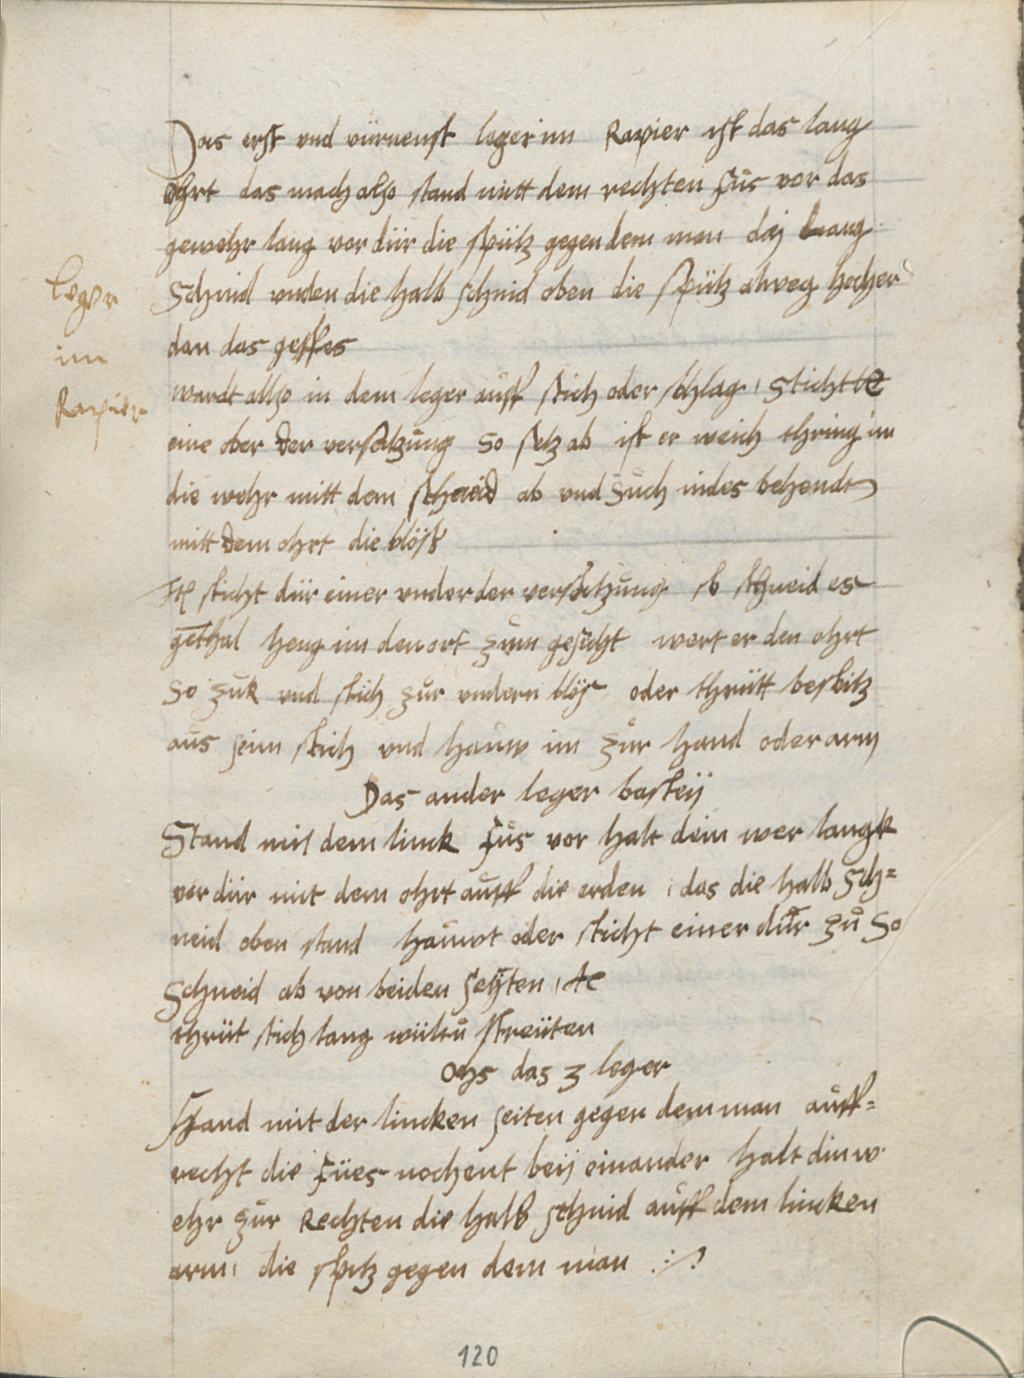 Das erst vnd vürnenst leger im Rapier ist das lang
ohrt das mach also stand mitt dem rechten fůs vor das
gewehr lang vor dür die spütz gegen dem man daß Lang
Leger
im
Rapier
Schnid vnden die halb schnid oben die spütz alweg hocher
dan das gefses
wardt allso in dem leger auff stich oder schlag, Sticht te
eine ober der versatzůng so setz ab ist er weich thring im
die wehr mitt dem schneid ab vnd Sůch indes behendt
mitt dem ohrt die blöß
Itē sticht dür einer vnder der versatzůng so schneid es
gethal heng im den ort zům gesicht wert er den ohrt
so zůk vnd stich zůr vndern blös oder thrütt besbitz
aůs seim stich vnd haůw im zůr hand oder arm
Das ander leger basteÿ
Stand mit dem linck fůs vor halt dein wer langk
vor dür mit dem ohrt aůff die erden, das die halb sch=
neid oben stand haůwt oder sticht einer dür zů so
Schneid ab von beiden seÿten, te
thrüt stich lang streüten
Ochs das 3 leger
Stand mit der lincken seiten gegen dem man aůff=
recht die fües nochent beÿ einander halt din w
ehr zůr Rechten die halb schnid aůff dem lincken
arm, die spitz gegen dem man
120